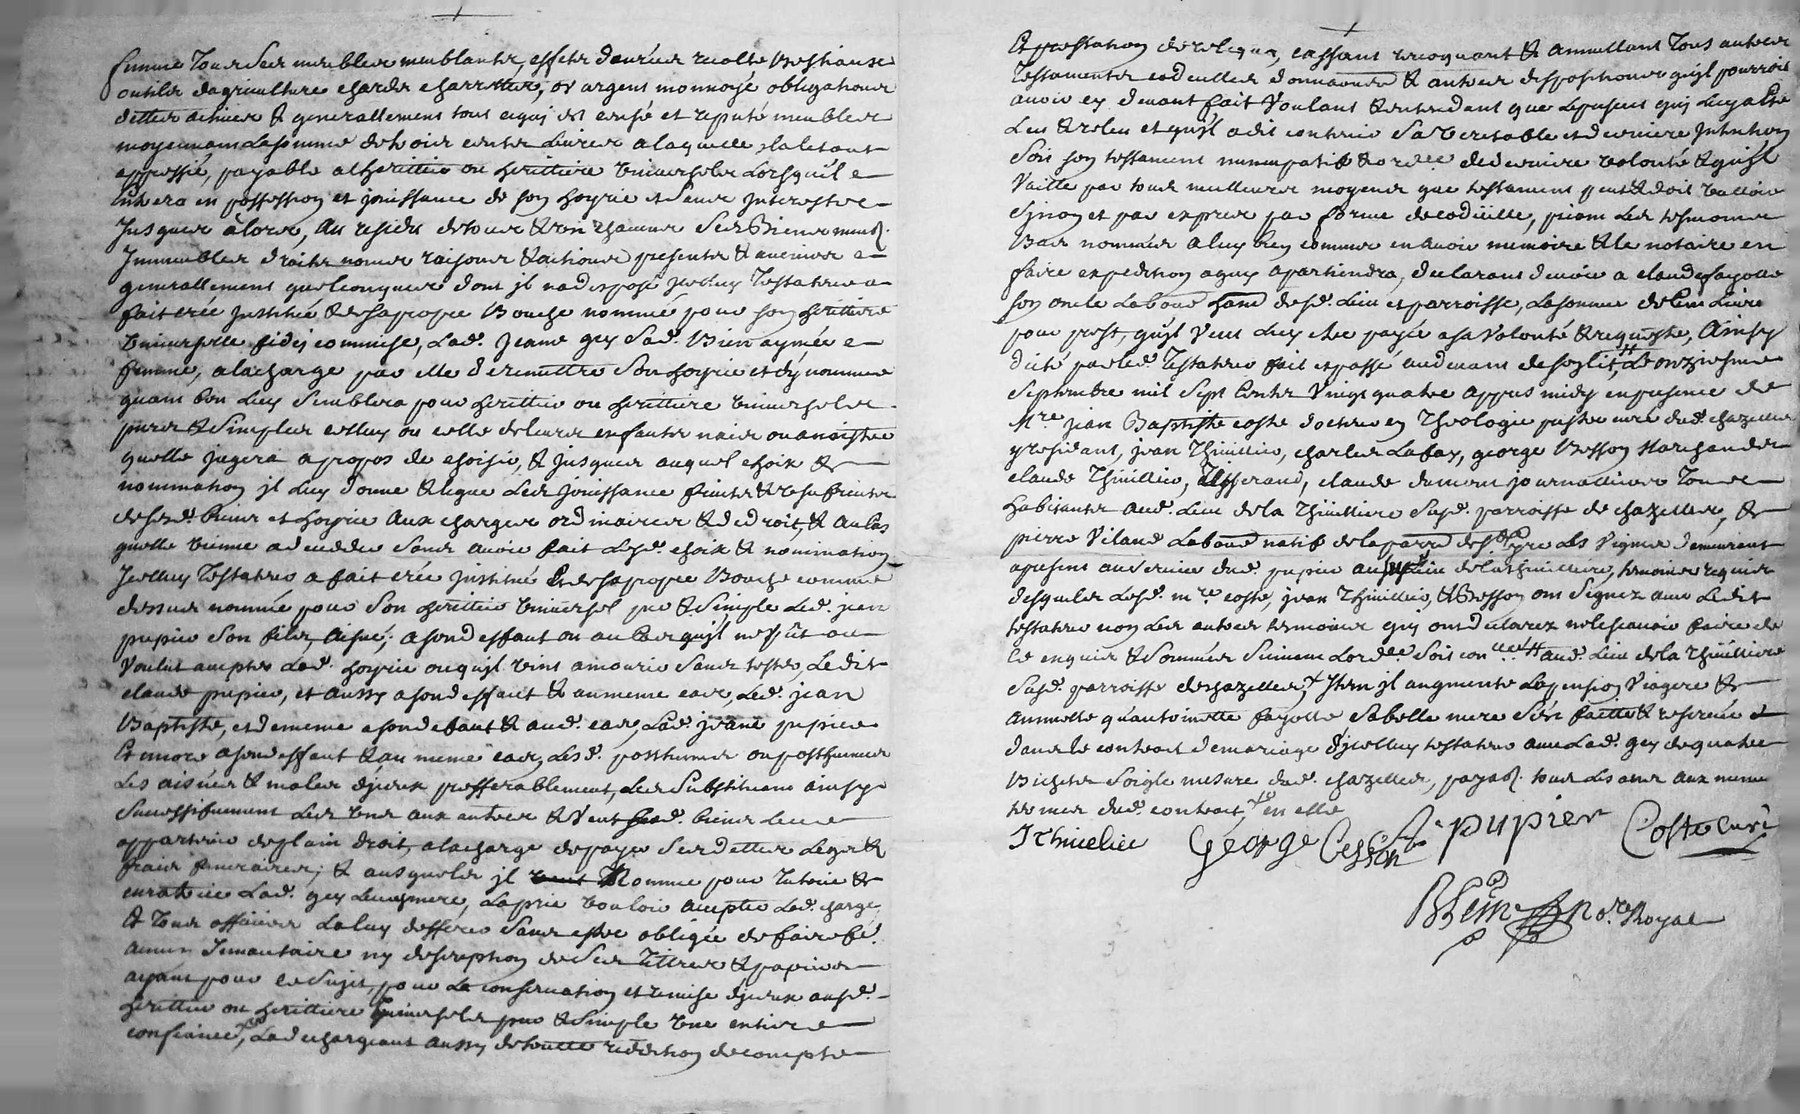 femme Tous ses meubles meublants, effets danrées recolte Bestiaux
outils dagriculture chards charrettes, or argent monnoyé obligations
dettes actives & generallement tout ce qui est censé et reputé meubles
moyennant la somme de trois cents Livres a laquelle il a le tout
apprecié, payable a lheritier ou heritiere universels Lorsquil
entrera en possession et jouissance de son hoyrie et sans Interests
Jusques à lors, Au residu de tous & un chacuns ses Biens meub.
Immeubles droits noms raisons & actions presents & avenirs
generallement quelconques dont il na disposé jcelluy Testateur a
fait créé Institué & de sa propre Bouche nommée pour son heritiere
universelle fideicommise, Lad. Jeane gey sad. Bien aymée
femme, a la charge par elle de remettre son hoyrie et dy nommer
quant bon luy semblera pour heritier ou heritiere universels
purs & simples celluy ou celle de leurs enfants naix ou a naistre
quelle jugera a propos de choisir, & jusques auquel choix &
nommination jl luy donne & legue Les jouissance fruits & usufruits
de sesd. biens et hoyrie aux charges ordinaires & de droit, & au cas
quelle vienne a decedder sans avoir fait Lesd. choix & nommination
Jcelluy Testateur a fait créé Institué & de sa propre Bouche comme
dessus nommé pour son heritier universel pur & simple Led. jean
pupier son fils aisné; a son deffaut ou au cas quil ne peut ou
Voulut accepter Lad. hoyrie ou quil vint a mourir sans tester, Ledit
claude pupier, et aussy a son deffaut & au meme cas, Led. jean
Baptiste, et de meme a son defaut & aud. cas, Lad. jeane pupier
Et encore a son deffaut & au meme cas, Lesd. posthumes ou posthumes
Les aisnés & males djceux prefferablement, Les substituant ainsy
successifvement Les uns aux autres & veut sesd. biens leur
appartenir de plain droit, a la charge de payer ses dettes Legats
frais funeraires; & ausquels jl nomme pour tutrice &
curatrice Lad. gey leur mere, La prie vouloir accepter Lad. charge
& tous officiers La luy defferer sans estre obligée de faire fé.
aucun Inventaire ny description de ses Tittres & papiers
ayant pour ce sujet, pour La conservation et remise djceux ausd.
heritier ou heritiere universels pur & simple une entiere
confiance, La dechargeant aussy de toutte reddition de compte
Et prestation de reliqua, cassant revoquant & annullant Tous autres
Testaments codicilles donnations & autres dispositions quil pourroit
avoir cy devant fait Voulant & entendant que le present quy luy a esté
Leu & releu et quil a dit contenir sa veritable et derniere Intention
Soit son testament nuncupatif & ordce. de derniere volonté & quil
Vaille par tous meilleurs moyens que testament peut & doit valloir
Sinon et par exprès par forme de codicille, priant Les tesmoins
Bas nommés a luy bien connus en avoir memoire & le notaire en
faire expedition a quy apartiendra, declarant devoir a claude fayolle
son oncle Laboureur dud. Lieu et parroisse, La somme de Cent Livres
pour prest, quil veut luy etre payée a sa volonté & requeste, Ainsy
dicté par led. Testateur fait et passé au devant de son lit, Le onziesme
Septembre mil Sept Cents Vingt quatre appres midy en presence de
Mre. jean Baptiste coste docteur en Theologie prestre curé dud. chazelles
y residant, jean Thiuillier, charles Lafay, george Besson Marchands
claude Thiuillier, Tisserand, claude dumont journallier Tous
habitants aud. Lieu de la Thiuilliere Susd. parroisse de chazelles, &
pierre Vilard Laboureur natif de la parre. de St. Cyre Les Vignes demeurant
apresent au service dud. pupier aud. lieu de la Thiuilliere, temoins requis
desquels Lesd. mre coste, jean Thiuillier, & Besson ont signez avec Ledit
testateur non Les autres temoins quy ont declarez ne le scavoir faire de
ce enquis & sommés suivant Lordce. Soit con aud. Lieu de la Thiuilliere
Susd. parroisse de chazelles, Item jl augmente La pension Viagere &
annuelle qu'antoinette fayolle sa belle mere s'est faitte & reservée
dans le contract de mariage djcelluy testateur avec Lad. gey de quatre
Bichets Soigle mesure dud. chazelles, payab. tous Les ans aux meme
termes dud. contract, en elle
J thiuelier George Besson C pupier Coste curé
Bhein nore. Royal